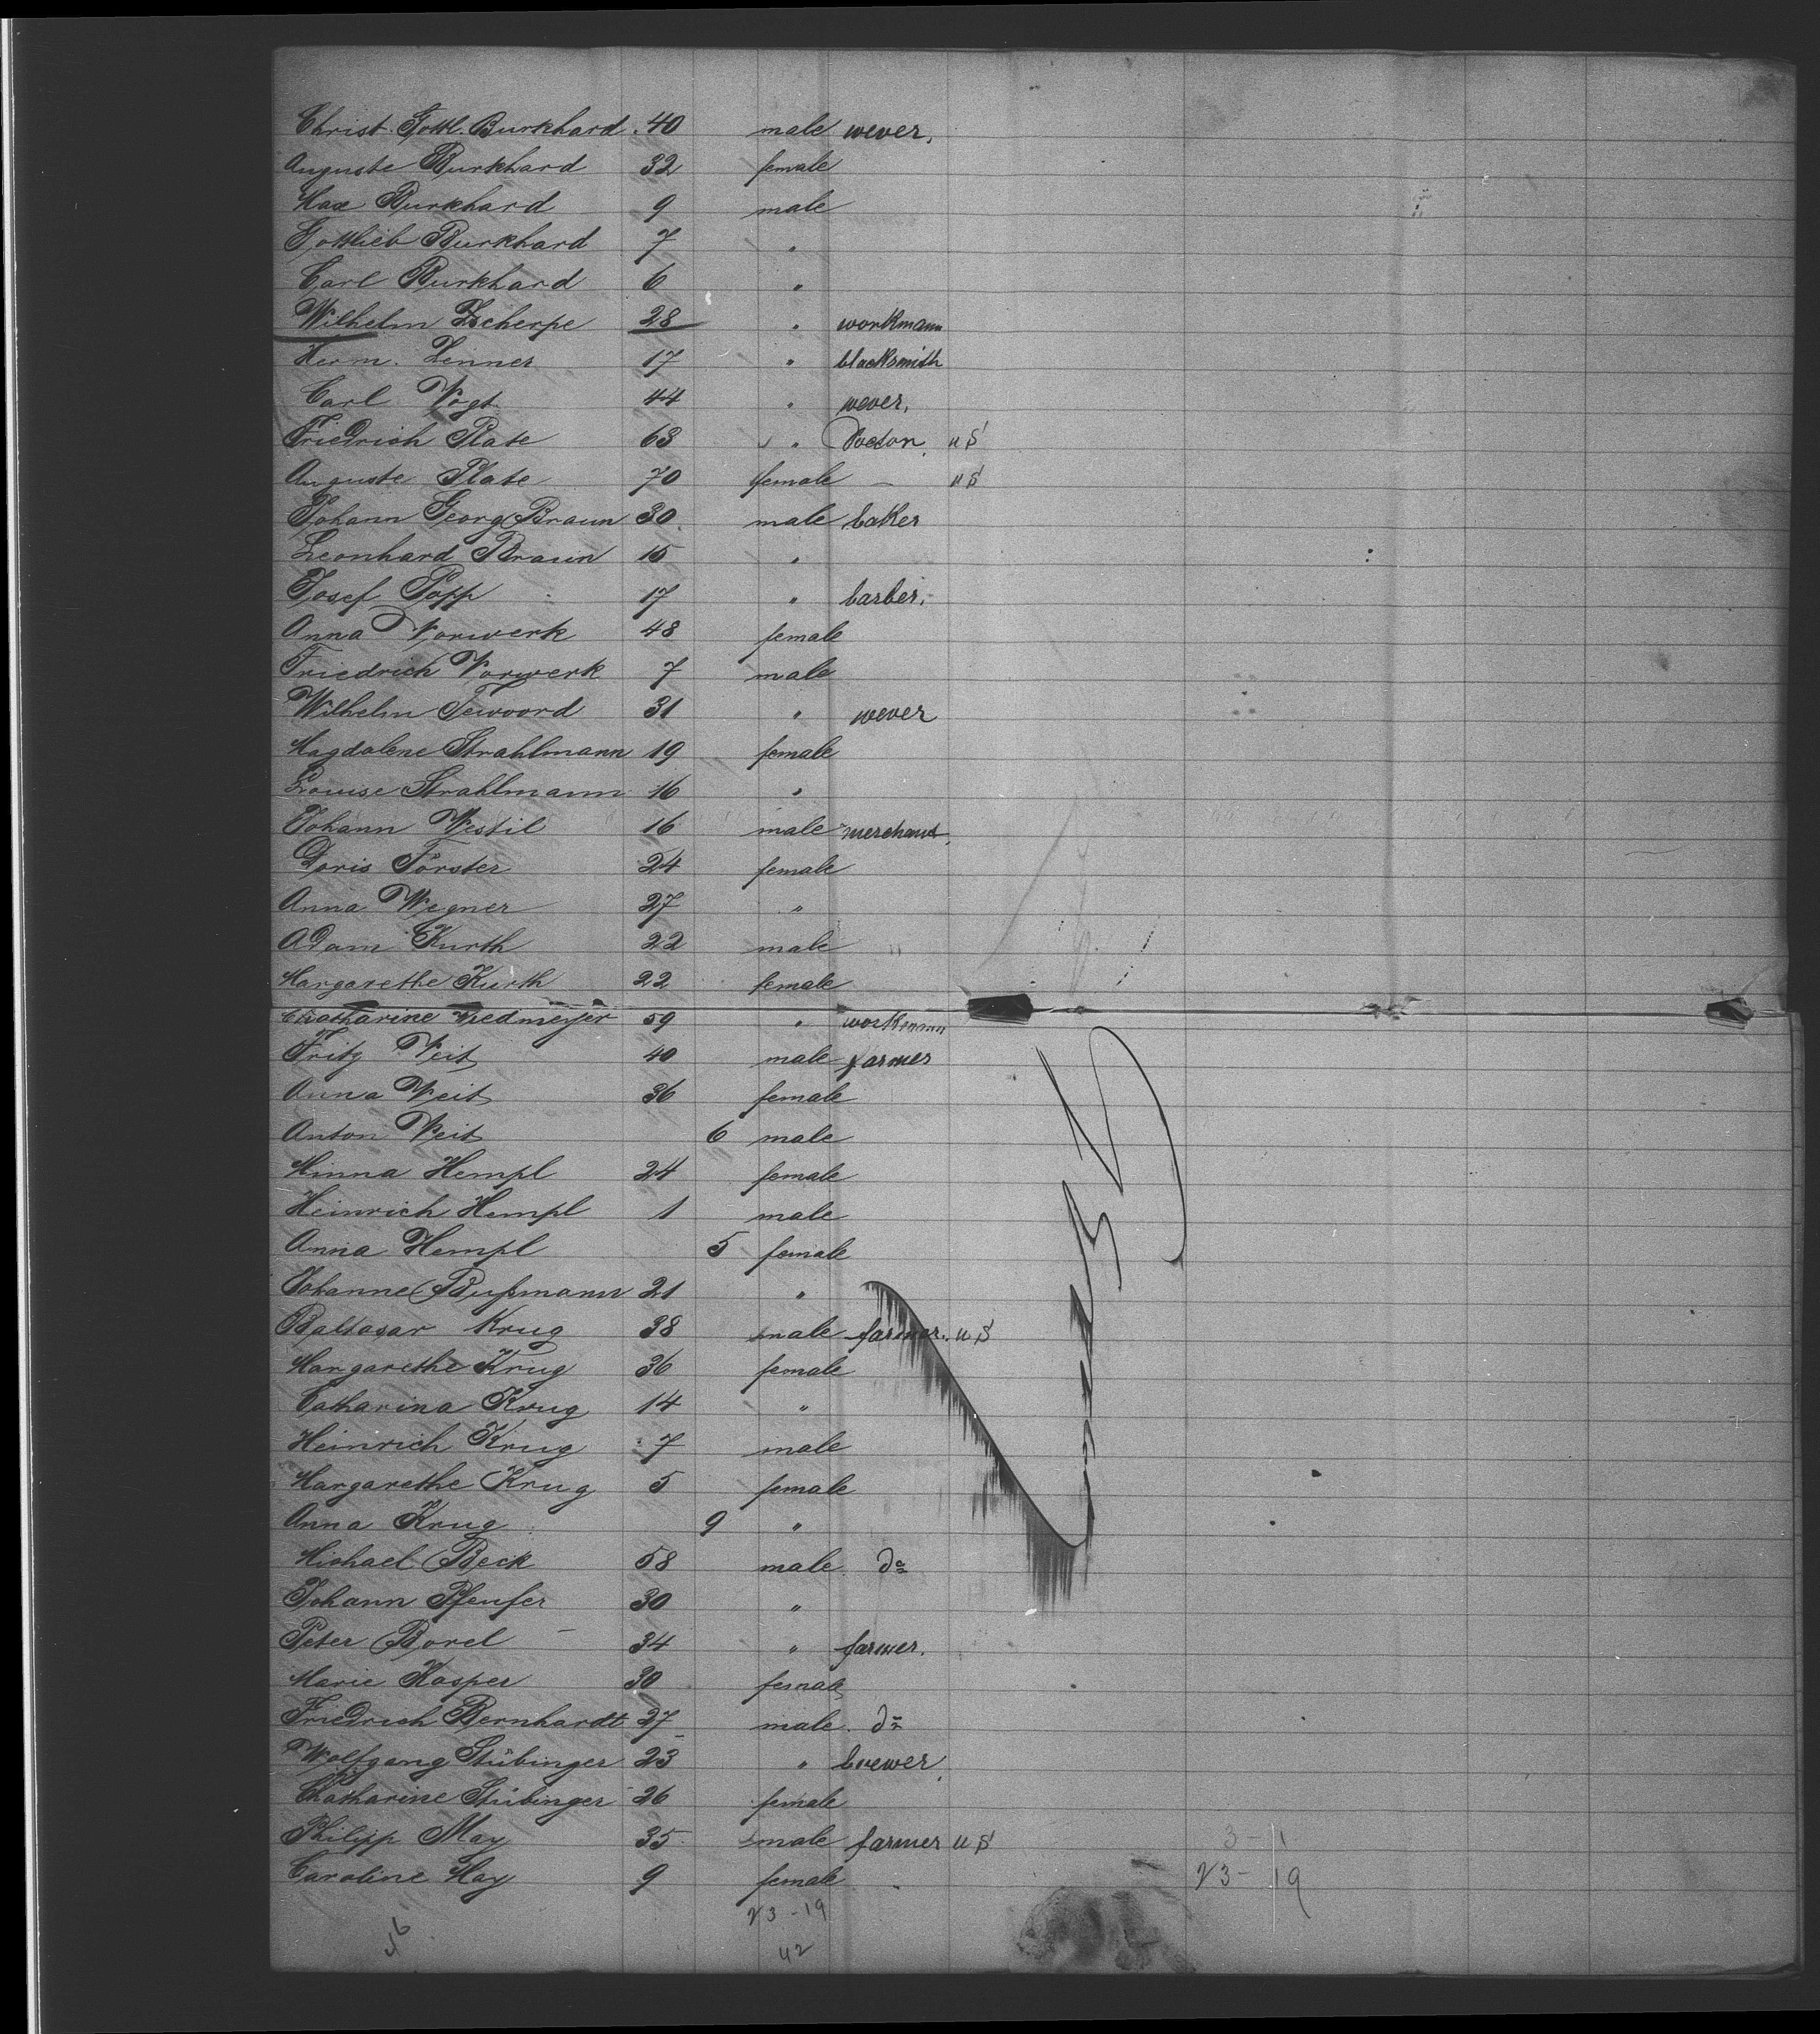 Christ. Gottl. Burkhard. 40 male wever.
Auguste Burkhard 32 female
Max Burkhard 9 male
Gottlieb Burkhard 7 "
Carl Burkhard 6 "
Wilhelm Zscherpe 28 " workmann
Herm. Zenner 17 " blacksmith
Carl Vogt 44 " wever.
Friedrich Plate 63 " Doctor. US
Auguste Plate 70 female – US
Johann Georg Braun 30. male baker
Leonhard Braun 15 "
Josef Popp 17 " barber.
Anna Vorwerk 48 female
Friedrich Vorwerk 7 male
Wilhelm Tewoord 31 " wever
Magdalene Strahlmann 19 female
Louise Strahlmann 16 "
Johann Westil 16 male merchant.
Doris Förster 24 female
Anna Wegner 27 "
Adam Kurth 22 male
Margarethe Kurth 22 female
Chatharine Wedmeyer 59 " workmann
Fritz Veit 40 male farmer
Anna Veit 36 female
Anton Veit 6 male
Minna Hempl 24 female
Heinrich Hempl 1 male
Anna Hempl 5 female
Johanne Bußmann 21 "
Baltasar Krug 38 male farmer. US
Margarethe Krug 36 female
Catharina Krug 14 "
Heinrich Krug 7 male
Margarethe Krug 5 female
Anna Krug 9 "
Michael Beck 58 male do
Johann Pfeufer 30 "
Peter Borel – 34 " farmer.
Marie Kasper 30 female
Friedrich Bernhardt 27 male. do
Wolfgang Stübinger 23 " brewer.
Chatharine Stübinger 26 female
Philipp May 35 male farmer US
Caroline May 9 female
3 - 1
23 - 19
23 - 19
46
42